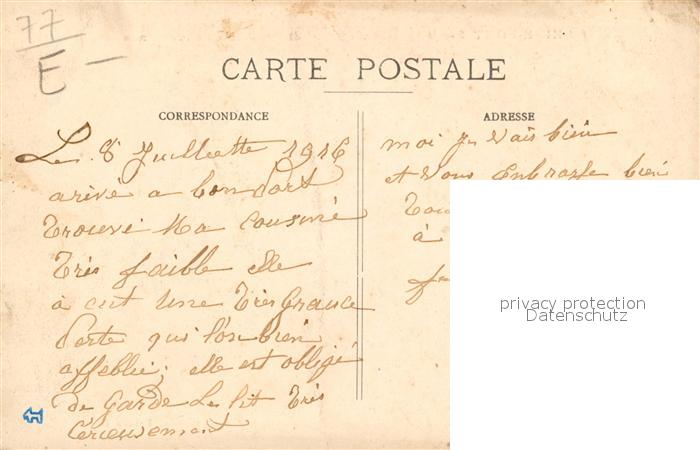 77
E
CARTE POSTALE
CORRESPONDANCE
Le 8 Juilliette 1916
arivé a bon Port
Trouvé Ma Cousine
Très faible elle
à eut une Très Grande
Perte qui l'on bien
affeblie; elle est obligé
de Garde Le lit Très
Cérieusement
ADRESSE
moi je vais bien
et vous Enbrasse bien
à
privacy protection
Datenschutz